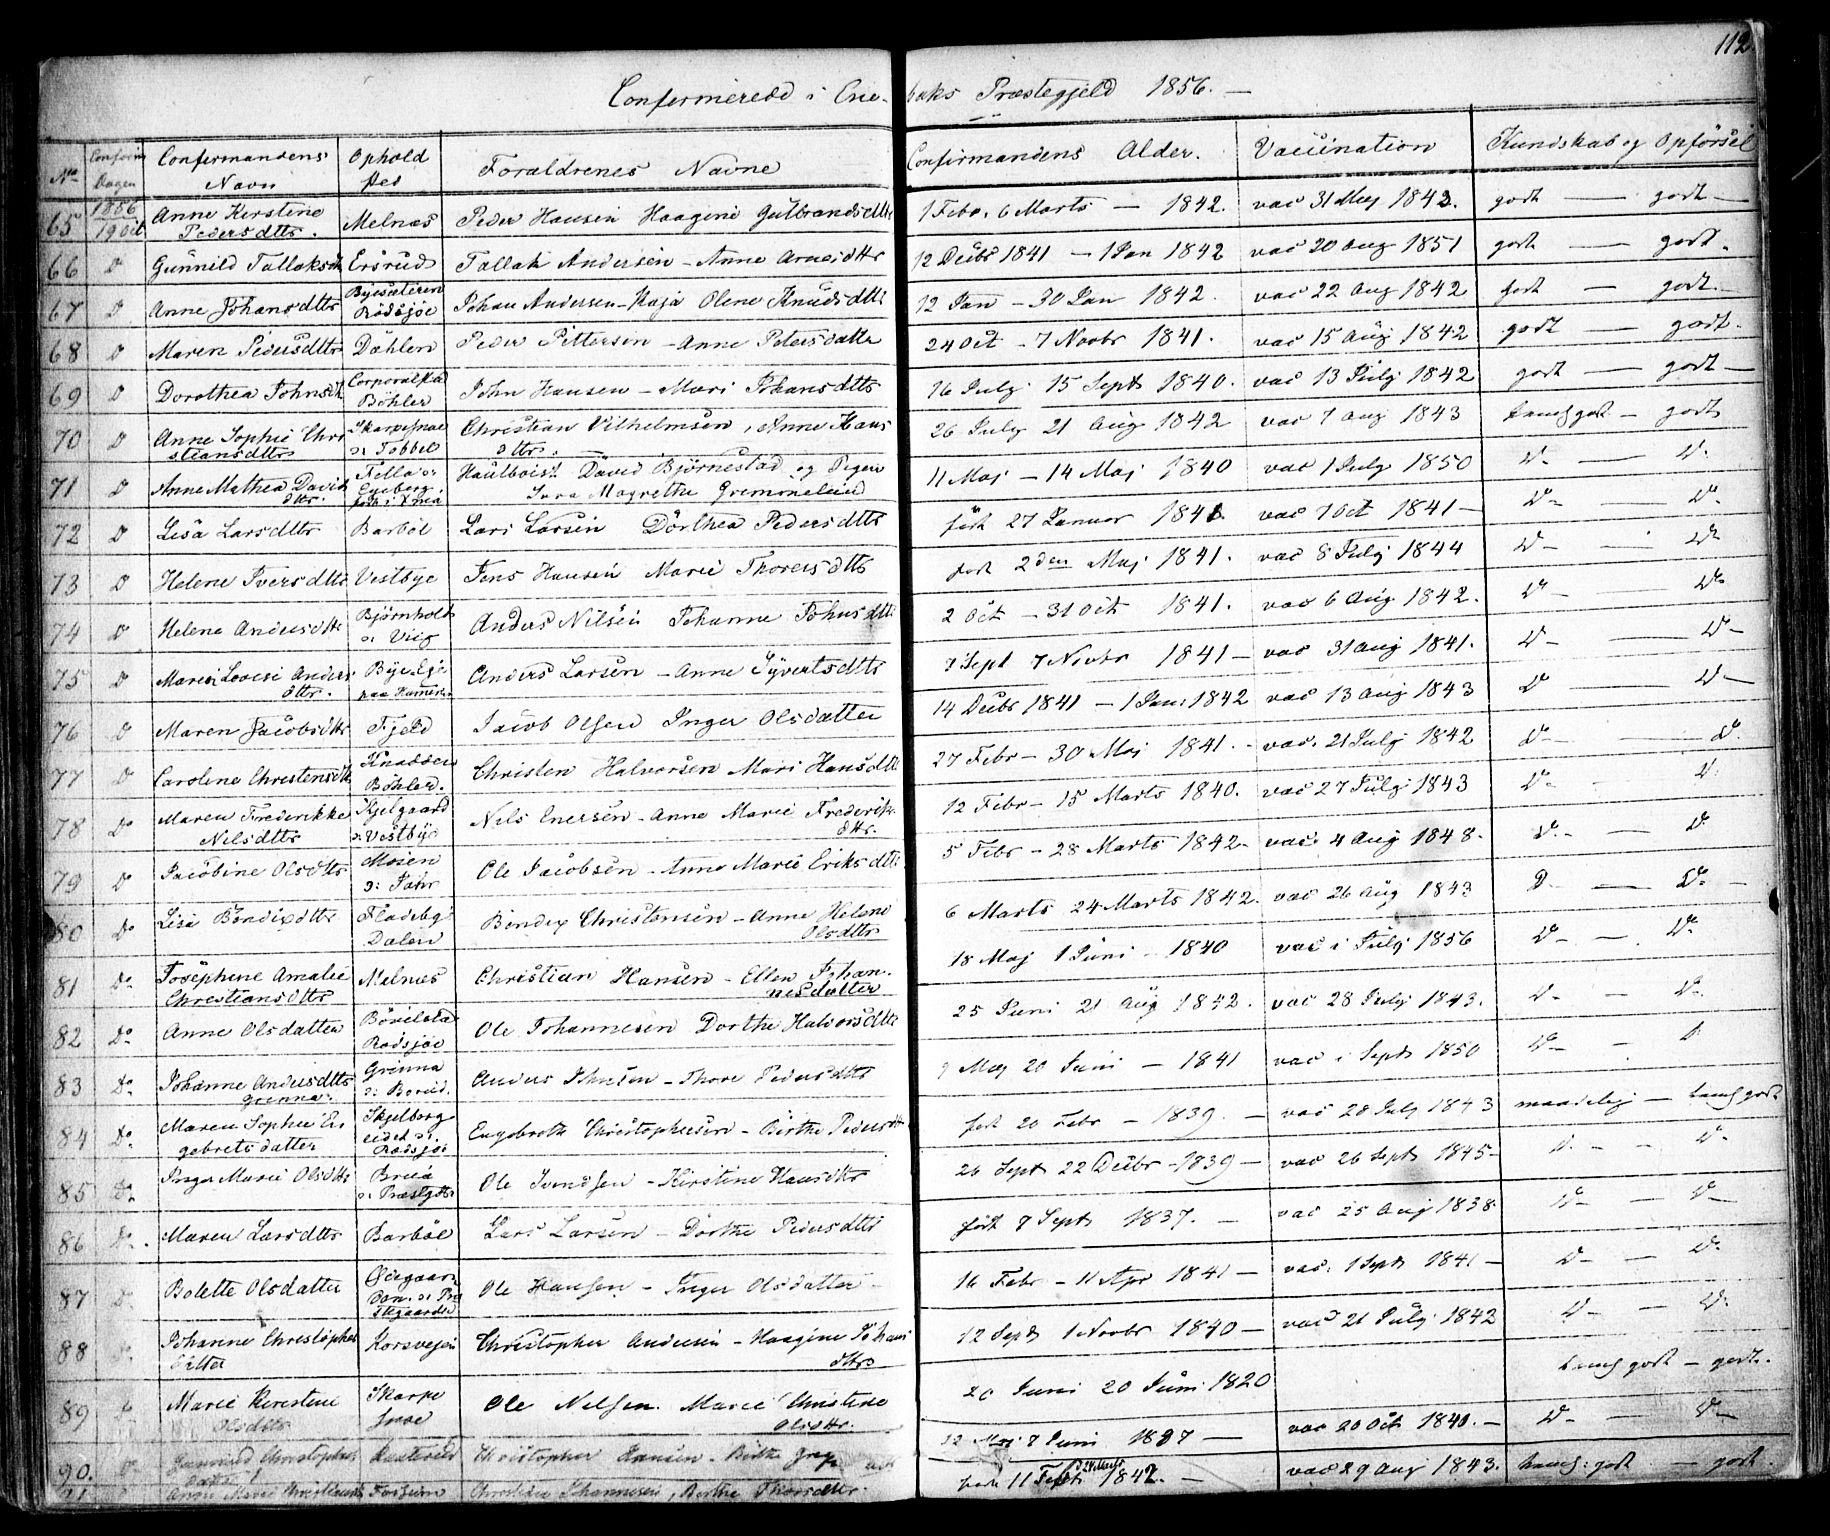 112
Confirmerede i Enebaks Præstegjeld 1856. —
No Confirm Dagen Confirmandens Navn Ophold sted Forældrenes Navne Confirmandens Alder. Vaccination Kundskab og Opførsel
65 1856 19 Oct Anne Kerstine Pedersdttr. Melnæs Peder Hansen Haagine Gulbrandsdttr 1 Febr. 6 Marts — 1842. vac 31 May 1843. godt — godt —
66 D Gunnild Tallaksdt Ersrud Tallak Andersen - Anne Arnesdttr 12 Decbr 1841 — 1 Jan 1842 vac 20 aug 1851 godt — godt.
67 D Anne Johansdttr Byesæteren Rødsjøe Johan Andersen - Kaja Olene Knudsdttr 12 Jan — 30 Jan 1842. vac 22 aug 1842 godt — godt.
68 D Maren Pedersdttr Dahlen Peder Pettersen - Anne Petersdatter 24 Oct - 7 Novbr 1841. vac 15 aug 1842 godt — godt.
69 D Dorothea Johnsdt Böhler John Hansen - Mari Johansdttr 16 July 15 Septb 1840. vac 13 July 1842 godt — godt —
70 D Anne Sophie Christiansdttr Skarpsnoe Tobbel Christian Vilhelmsen, Anne Hansdttr. 26 July 21 Aug 1842 vac 7 aug 1843 temlgodt — godt
71 D Anne Mathea Daviddttr. Hautboist David Bjørnestad og Pigen Sara Magrethe Gremmelund 11 Maj — 14 Maj 1840 vac 1 July 1850 D. — D.
72 D Lisa Larsdttr Barböl Lars Larsen Dorthea Pedersdttr født 27 Januar 1841. vac 7 Oct 1841 — Do — Do
73 D Helene Iversdttr Vestbye Jens Hansen Marie Thorersdttr født 2den Maj 1841. vac 8 July 1844 D — Do
74 D Helene Andersdttr Björnholt Anders Nilsen Johanne Johnsdttr 2 Oct — 31 Oct 1841. vac 6 aug 1842. Do — Do
75 D Maren Lovise Andersdttr. Anders Larsen - Anne Syvertsdttr 7 Sept 7 Novbr 1841 — vac 31 aug 1841. D — D —
76 D Maren Jacobsdttr Fjeld Jacob Olsen Inger Olsdatter 14 Decbr 1841 — 1 Jan: 1842 vac 13 aug 1843 Do — D —
77 D Carolene Christensdttr Böhler. Christen Halvorsen Mari Hansdttr 27 Febr — 30 Maj 1841. - vac. 21 July 1842 D — D.
78 Do Maren Frederikke Nilsdttr Kjelgaard Vestbye Nils Enersen - Anne Marie Frederiksdttr. 12 Febr — 15 Marts 1840. vac 27 July 1843 D — D.
79 D Jacobine Olsdttr Moien Ole Jacobsen - Anne Marie Eriksdttr 5 Febr — 28 Marts 1842 - vac. 4 aug 1848. D. — D
80 Do Lisa Bondixdttr Fladebye Dalen Bendix Christensen - Anne Helene Olsdttr 6 Marts 24 Marts 1842. vac 26 aug 1843 D. — Do —
81 Do Josephine Amalie Christiansdttr Melnæs Christian Hansen - Ellen Johannesdatter 18 Maj 1 Juni - 1840 vac i July 1856 D — Do
82 Do Anne Olsdatter Rødsjøe Ole Johannesen Dorthe Halvorsdttr 25 Juni 21 Aug 1842. vac 28 July 1843. D — Do
83 Do Johanne Andersdttr grinna. Grinna Anders Johnsen - Thore Pedersdttr 9 May 20 Juni — 1841 vac i Septb 1850 Do — D
84 Do Maren Sophie Engebretsdatter Skjelbergeidet Rødsjøe Engebreth Christophersen - Birthe Pedersdttr født 20 Febr — 1839. — vac 28 July 1843 maadelig — temlgodt
85 Do Inger Marie Olsdttr Ole Svendsen - Kirstine Hansdttr 26 Sept 22 Decbr - 1839 — vac 26 Septb 1845 - D. — D.
86 Do Maren Larsdttr Barböl Lars Larsen - Dorthe Pedersdttr født 7 Septb 1837. — vac 25 aug 1838. D — D
87 D Bolette Olsdatter Ødegaarden Ole Hansen - Inger Olsdatter - 16 Febr — 11 Apr 1841 — vac. 1 Septb 1841 — D — D.
88 D Johanne Christophersdatter Korsvejen Christopher Andersen - Haagine Johansdttr 12 Septb 1 Novbr 1840 — vac 21 July 1842 D — D.
89 D Marie Kerestine Olsdttr Skarpsnoe Ole Nelsen. Marie Christine Olsdttr. 20 Juni 20 Juni 1820 temlgodt — godt.
90. D Gunnild Christophersdatter Christopher Hansen - Birthe 12 Maj 7 Juni 1837 — vac 20 Oct 1840. — D — D —
91 Anne Marie Christiansdt Christian Johannesen, Berthe Thorsdttr. født 11 Febr 1842. — vac 29 aug 1843. temlgodt — godt